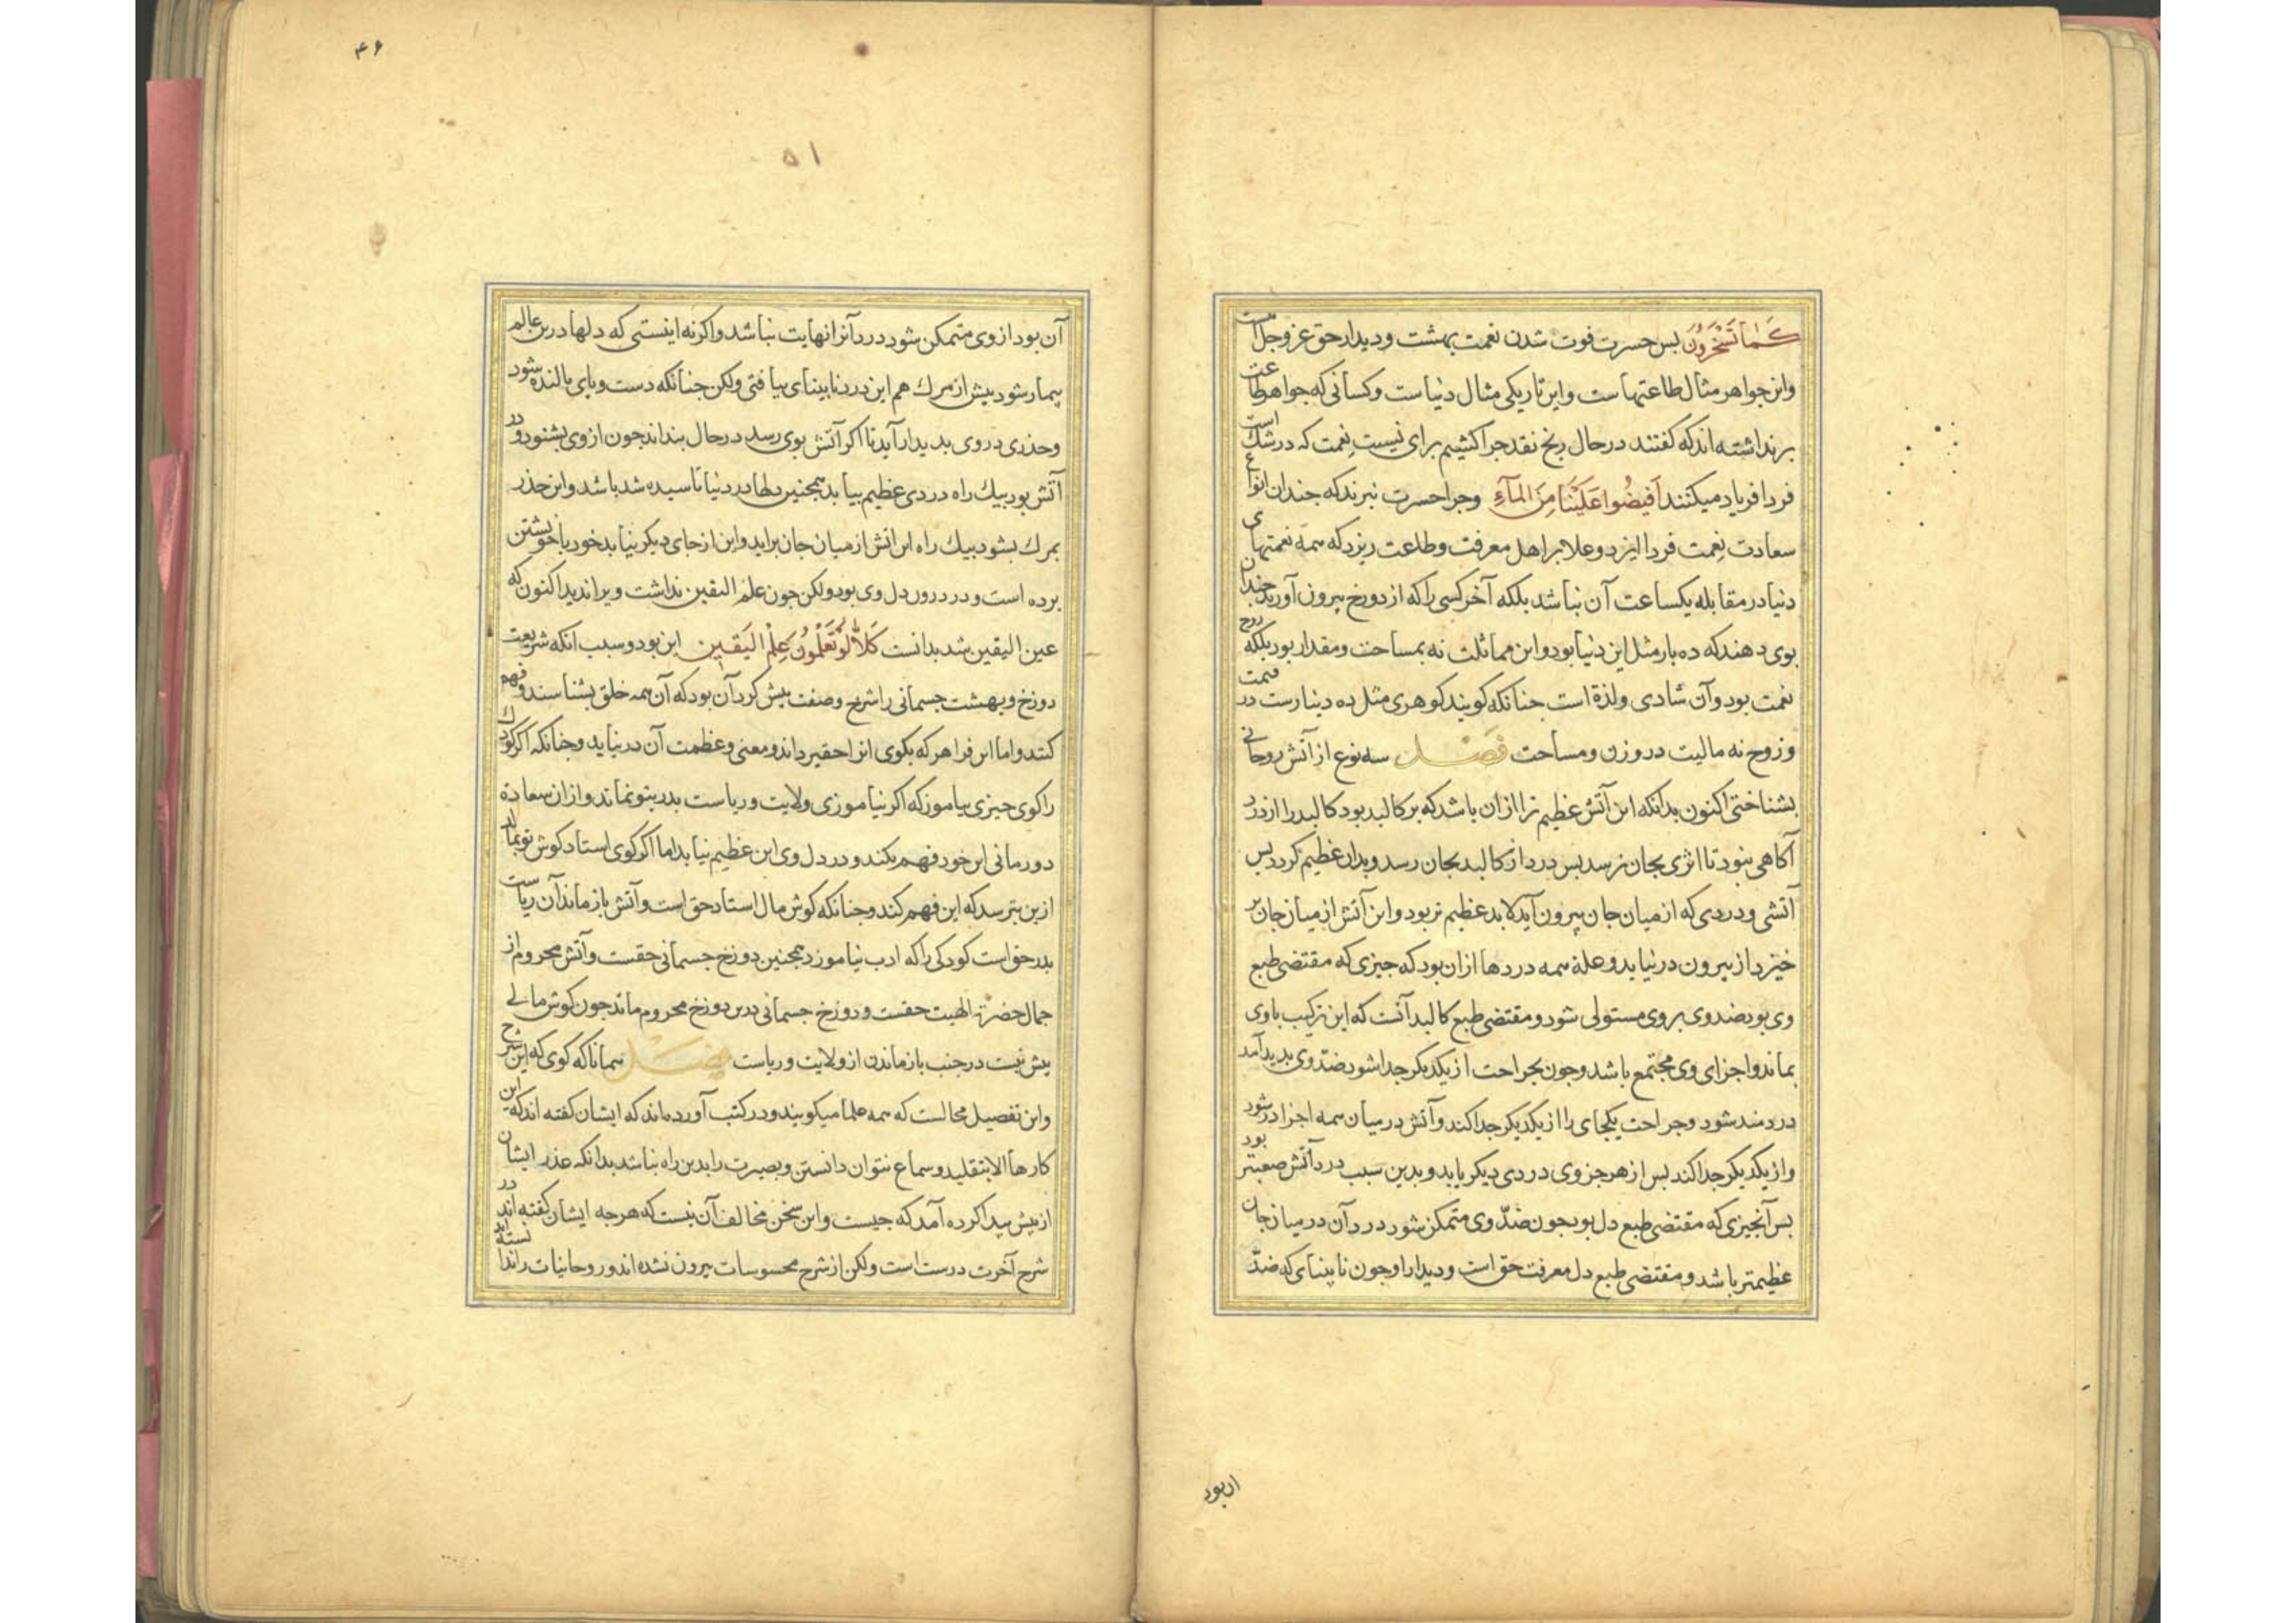 كَمٰا تَسْخَرُوُنَ بس حسرت فوت شدن نعمت بهشت و دیدار حق عز و جل است
و این جواهر مثال طاعتهاست و این تاریکی مثال دنیاست و کسانی که جواهر طاعت
برنداشته اند که کفتند در حال رنج نقد جرا کشیم برای نسیت نعمت که در شك است
فردا فریاد میکنند اَفیضُوا عَلَیْنَا مِنَ المآءِ وجرا حسرت نبرند که جندان انواع
سعادت نعمت فردا ایزد و علا بر اهل معرفت و طاعت ریزد که همه نعمتهای
دنیا در مقابله یکساعت آن نباشد بلکه آخر کسی را که از دوزخ بیرون آورند جندان
بوی دهند که ده بار مثل این دنیا بود و این مماثلت نه بمساحت و مقدار بود بلکه
نعمت بود و آن شادی و لذة است جنانکه کویند کوهری مثل ده دینارست در قیمت
و زوح نه مالیت در وزن و مساحت فَصْل سه نوع از آتش روحانی
بشناختی اکنون بدانکه این آتش عظیم تر از ان باشد که بر کالبد بود کالبد را از درد
آکاهی نبود تا اثری بجان نرسد بس درد از کالبد بجان رسد و بدان عظیم کردد بس
آتشی و دردی که از میان جان بیرون آید لا بد عظیم تر بود و این آتش از میان جان بر
خیزد از بیرون درنیاید و علة همه دردها ازان بود که جیزی که مقتضی طبع
وی بود ضد وی بر وی مستولی شود و مقتضی طبع کالبد آنست که این ترکیب با وی
بماند و اجزای وی مجتمع باشد و جون بجراحت از یکدیکر جدا شود ضدّ وی بدید آمد
دردمند شود و جراحت یکجای را از یکدیکر جدا کند و آتش در میان همه اجزا در شود
و از یکدیکر جدا کند بس از هر جزوی دردی دیکر یابد و بدین سبب درد آتش صعبتر بود
بس آنجیزی که مقتضی طبع دل بود جون ضدّ وی متمکن شود درد آن در میان جان
عظیمتر باشد و مقتضی طبع دل معرفت حق است و دیدار او جون نابینای که ضدّ
۴۶
۵۱
آن بود از وی متمکن شود درد آنرا نهایت نباشد و اکر نه اینستی که دلها درین عالم
بیمار شود بیش از مرك هم این درد نابینای بیافتی ولکن جنانکه دست و بای بالنده شود
و حذری در وی بدیدار آید تا اکر آتش بوی رسد در حال بنداند جون از وی بشنود و در
آتش بود بیك راه دردی عظیم بیابد همجنین دلها در دنیا تاسیده شد باشد و این حذر
بمرك بشود بیك راه این اتش از میان جان براید و این از جای دیکر بنیاید خود با خویشتن
برده است و در درون دل وی بود ولکن جون علم الیقین نداشت ویرا ندید اکنون که
عین الیقین شد بدانست كَلاّٰ لَوْ تَعْلَمُونَ عِلْمَ الیَقین این بود و سبب انکه شریعت
دوزخ و بهشت جسمانی را شرح و صفت بیش کرد آن بود که آن همه خلق بشناسند و فهم
کنند و اما این فرا هر که بکوی انرا حقیر داند و معنی و عظمت آن درنیابد و جنانکه اکر کودك
را کوی جیزی بیاموز که اکر نیاموزی ولایت و ریاست بدر بتو نماند و ازان سعادة
دور مانی این خود فهم نکند و در دل وی این عظیم نیاید اما اکر کوی استاد کوش تو بمالد
ازین بترسد که این فهم کند و جنانکه کوش مال استاد حق است و آتش باز ماندن از ریاست
بدر حق است کودکی را که ادب نیاموزد همجنین دوزخ جسمانی حقست و آتش محروم از
جمال حضرة الهیت حقست و دوزخ جسمانی درین دوزخ محروم ماند جون کوش مالی
بیش نیست در جنب باز ماندن از ولایت و ریاست فصْل همانا که کوی که این شرح
و این تفصیل مخالست که همه علما میکویند و در کتب آورده اند که ایشان کفته اند که این
کارها الا بتقلید و سماع نتوان دانستن و بصیرت را بدین راه نباشد بدانکه عذر ایشان
از بیش بیدا کرده آمد که جیست و این سخن مخالف آن نیست که هرجه ایشان کفته اند در
شرح آخرت درست است ولکن از شرح محسوسات بیرون نشده اند و روحانیات را ندانسته اند
ان بود